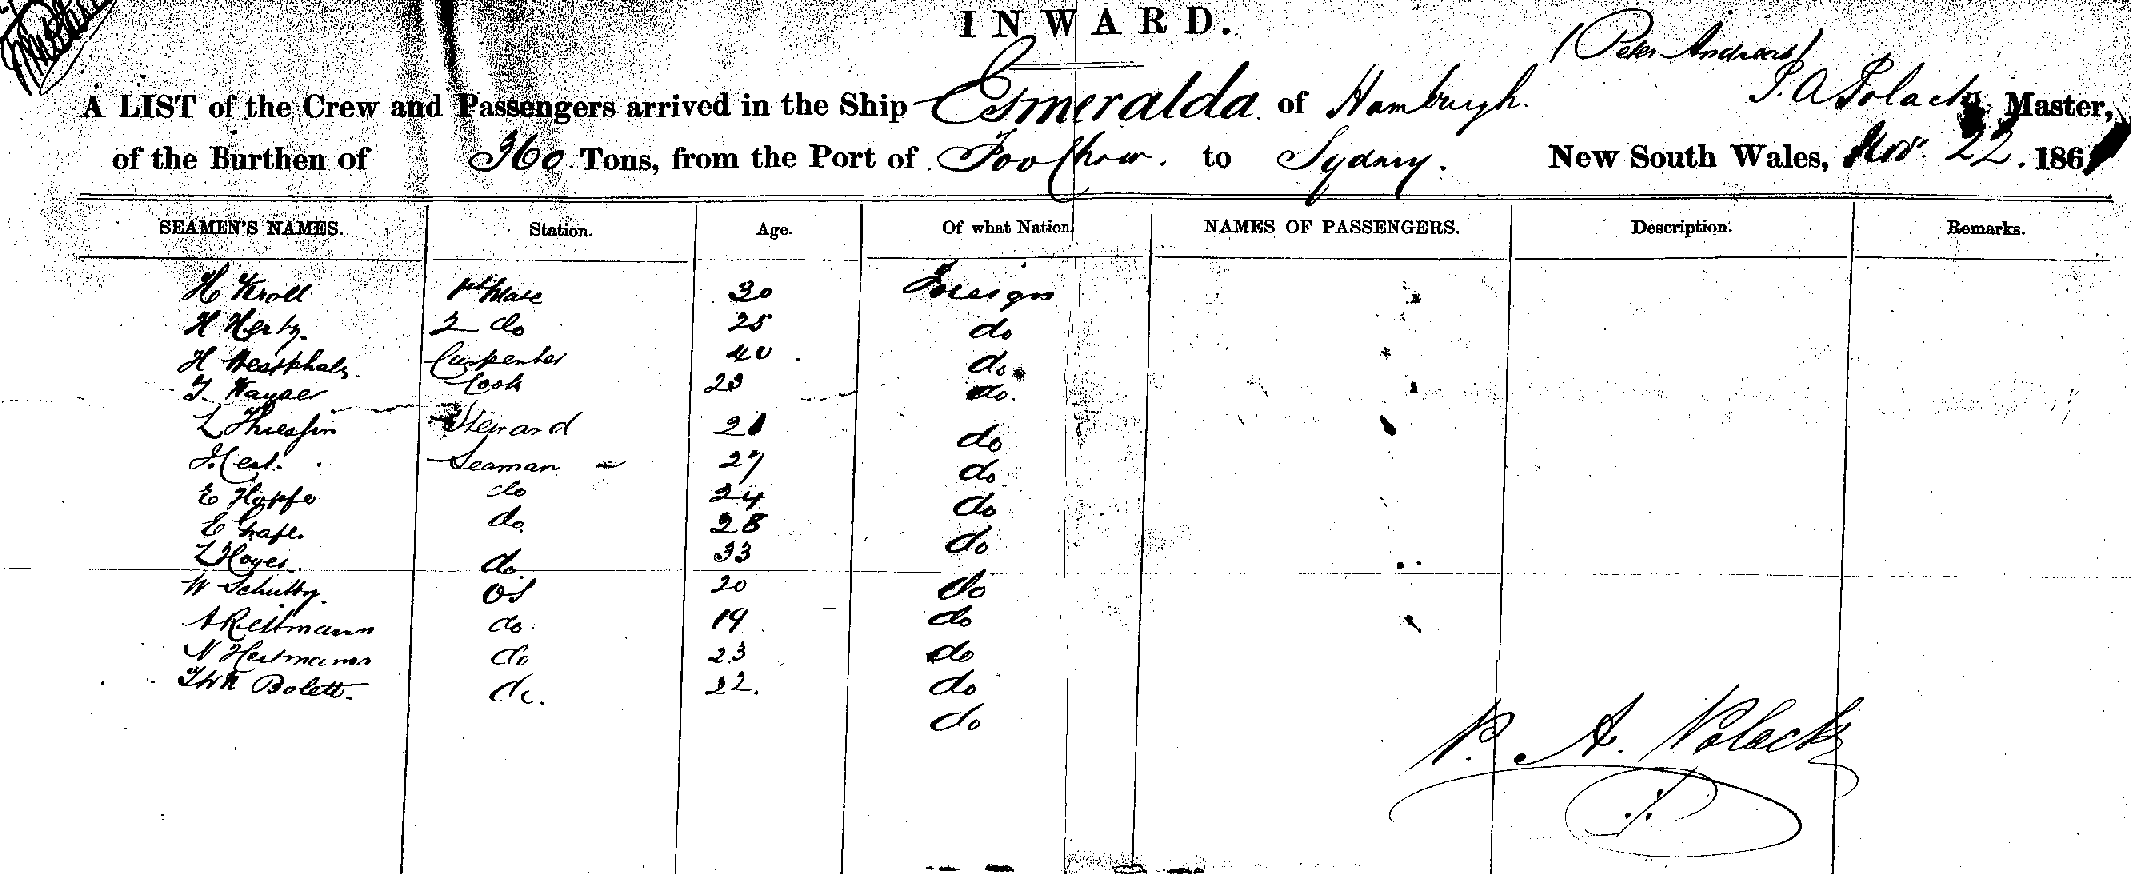 INWARD.
(Peter Andreas)
A LIST of the Crew and Passengers arrived in the Ship Esmeralda of Hamburgh. P. A Polack, Master,
of the Burthen of 360 Tons, from the Port of Foo Chow. to Sydney. New South Wales, Nov 22. 1861
SEAMEN'S NAMES. Station. Age. Of what Nation. NAMES OF PASSENGERS. Description. Remarks.
H Kroll 1st Mate 30 Foreign
H Hertz. 2 do 25 do
H Westphals Carpenter 40 do
Cook 23 do.
L Steward 21 do
Seaman 27 do
E Hopfe do 24 do
E Grafe. do 28 do
L Hoyer. do 33 do
W Schultz. OS 20 do
A Reitmann do 19 do
N Heitmann do 23 do
Bolett. do. 22. do
P. A. Polack